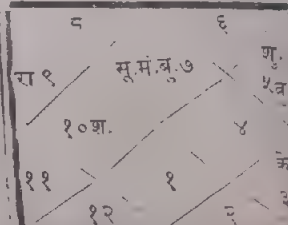 ८ ६
रा ९ सू.मं.बु.७ शु.
५
१० श. ४
११ १ के
१२ २